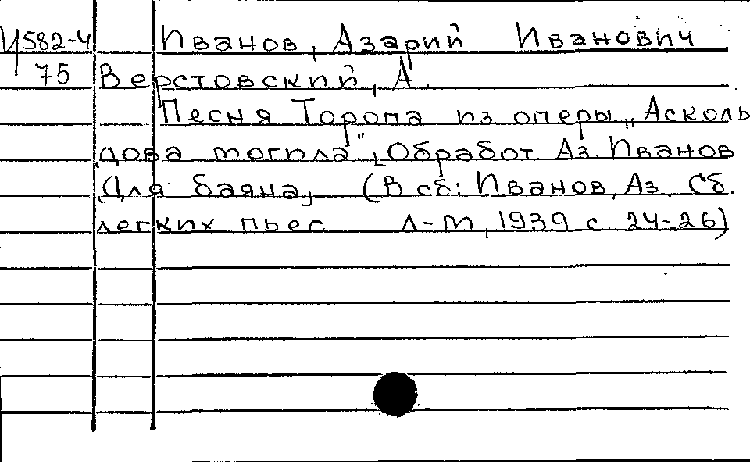 Ц582-4 Иванов, Азарий Иванович
75 Верстовский, А.
Песня Торопа из оперы „Асколь
дова могила", [Обработ. Аз. Иванов
Для баяна] (В сб: Иванов, Аз. Сб.
легких пьес Л-М, 1939 с 24-26)